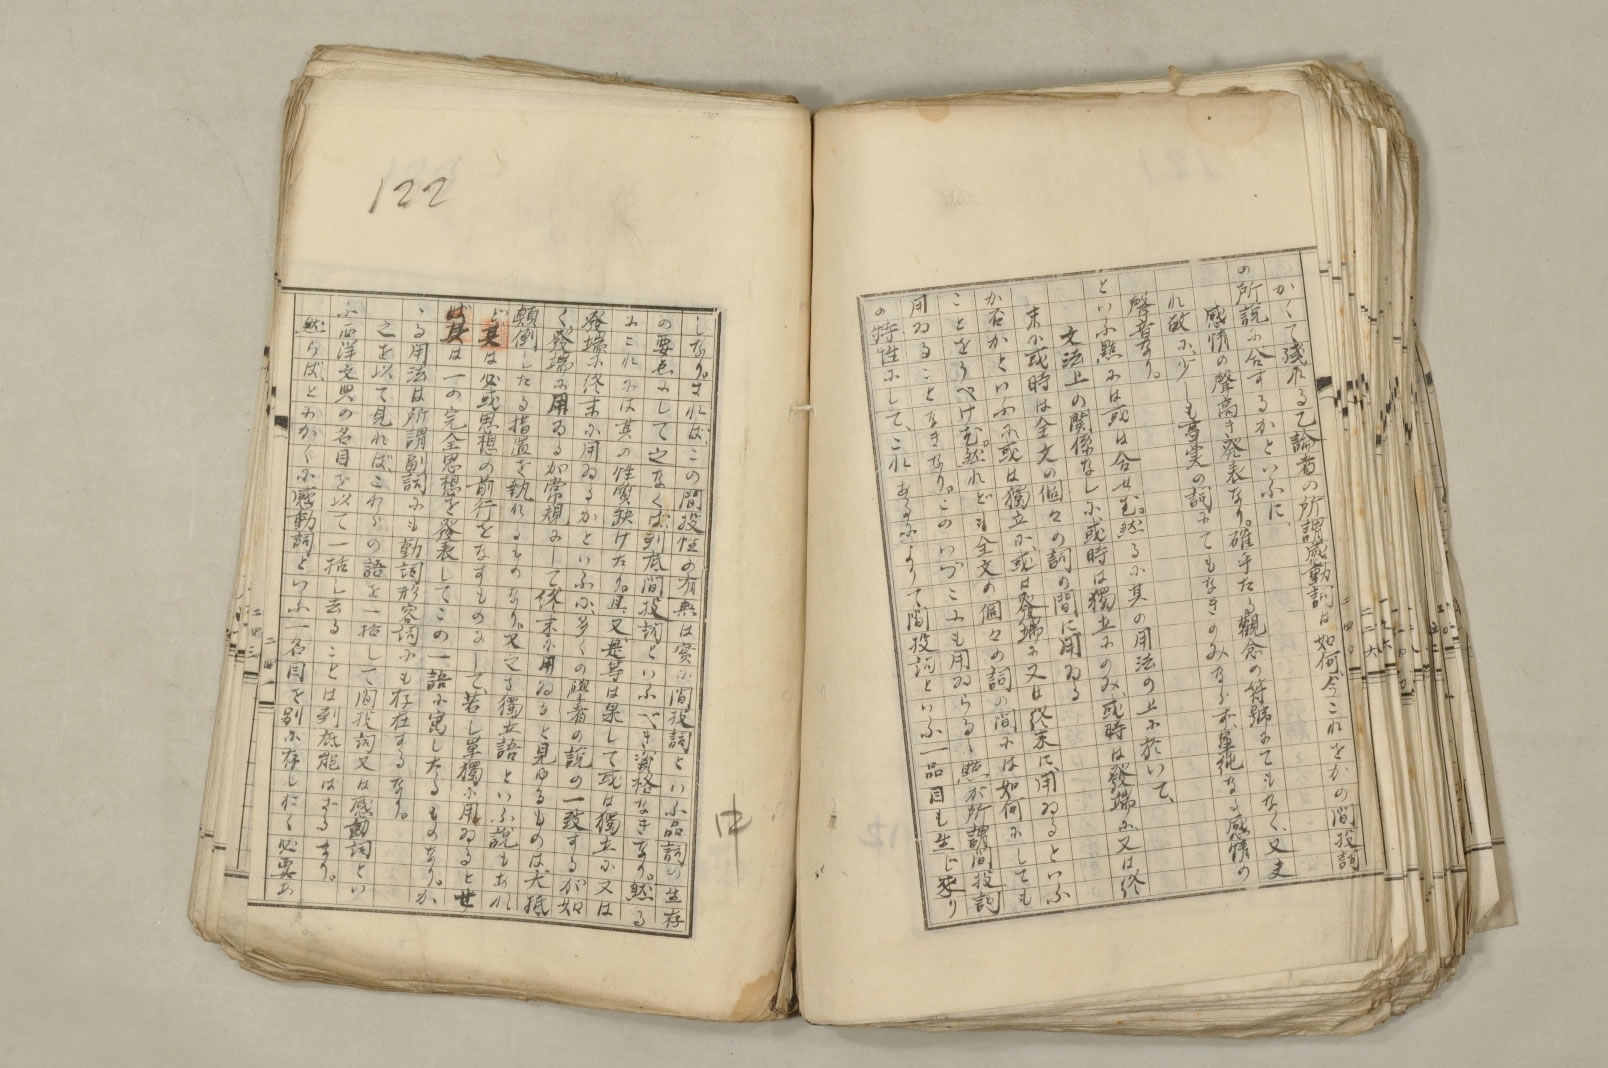 かくて残れる乙論者の所謂感動詞は如何、今これをかの間投詞
の所説に合するかといふに、
感情の聲高き発表なり。確乎たる觀念の符號にてもなく、又史
れ故に、少しも寫実の詞にてもなきのみならず、單純なる感情の
聲音なり。
といふ點には或は合せむ。然るに其の用法の上に於いて、
文法上の関係なしに或時は獨立にのみ、或時は發端に又は終
末に或時は全文の個々の詞の間に用ゐる
か否かといふに或は獨立に或は發端に又は終末に用ゐるといふ
ことをうべけむ。然れども全文の個々の詞の間には如何にしても
用ゐることなきなり。このいづこにも用ゐらるゝ點が所謂間投詞
の特性にして、これあるによりて間投詞といふ一品目も生じ來り
122
しなり。されば、この間投性の有無は實に間投詞といふ品詞の生存
の要点にして之なくば到底間投詞といふべき資格なきなり。然る
にこれには其の性質缺けたり。且又是等は果して或は獨立に又は
發端に終末に用ゐるかといふに、多くの學者の説の一致するが如
く、發端に用ゐるが常規にして終末に用ゐると見ゆるものは大抵
顛倒したる措置を執れるものなり。又之を獨立語といふ説もあれ
ど其は必或思想の前行をなすものにして若し單獨に用ゐると世
ば其は一の完全思想を發表してこの一語に寓したるものなり。か
ゝる用法は所謂副詞にも動詞形容詞にも存在するなり。
之を以て見ればこれらの語を一括して間投詞又は感動詞とい
ふ西洋文典の名目を以て一括し去ることは到底能はざるなり。
然らばとにかくに感動詞といふ一名目を別に存しおく必要あ
中
二四〇
二四一
二四三